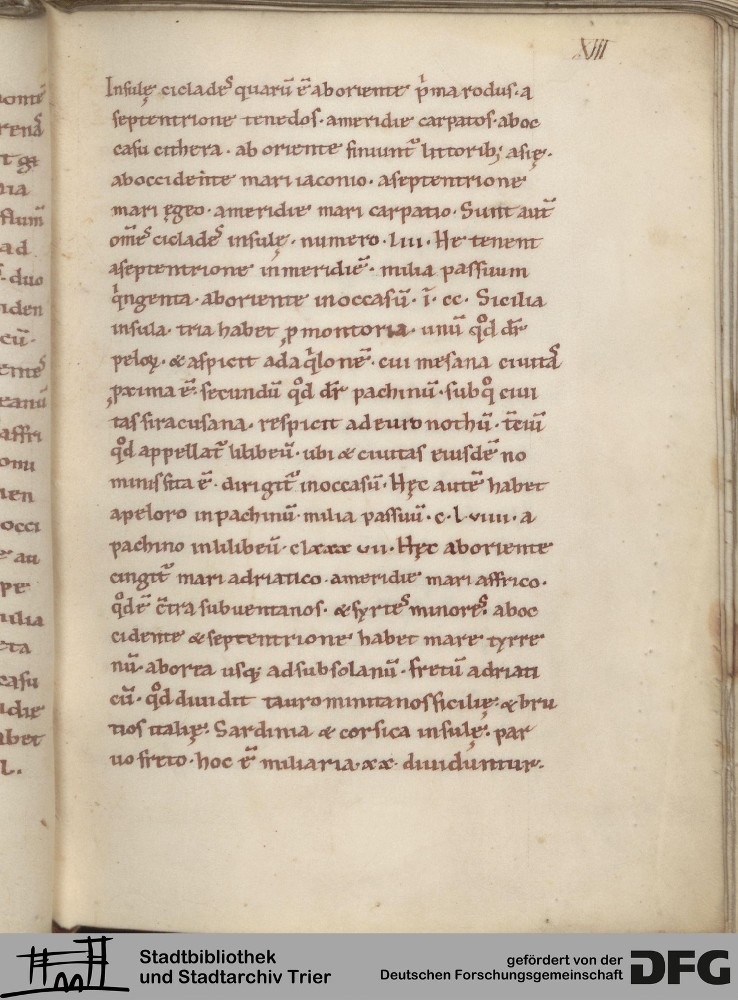 XIII
Insulę cicladeˢ quarū ē̄ aboriente pͥma rodus· a
septentrione tenedos· ameridie carpatos· aboc
casu cithera· ab oriente finiunt᷑ littorib; asię·
aboccidente mari iaconio· aseptentrione
mari ęgeo· ameridie mari carpatio· Sunt aut̄
om̄eˢ cicladeˢ insulę· numero· liii· He tenent
aseptentrione inmeridiē· milia passuum
qͥngenta· aboriente inoccasū· ī· cc· Sicilia
insula· tria habet ꝓmontoria· unū qͦd dr̄
pelorꝫ· & aspicit adaqͥlonē· cui mesana ciuitaˢ
ꝓxima ē· secundū qͦd dr̄ pachinū· subqͦ ciui
tas siracusana· respicit ad euro nothū· t̄ciū
qͦd appellat᷑ lilibeū· ubi & ciuitas eiusdē no
minis sita ē· dirigit᷑ inoccasū· Hęc autē habet
apeloro inpachinū· milia passuū· c· l viiii· a
pachino inlilibeū· clxxx vii· Hęc aboriente
cingit᷑ mari adriatico· ameridie mari affrico·
qͦd ē c̄tra subuentanos· & syrteˢ minoreˢ· aboc
cidente & septentrione habet mare tyrre
nū· aborea usq; adsubsolanū· fretū adriati
cū· qͦd diuidit tauro minitanos sicilię· & bru
tios italię· Sardinia & corsica insulę· par
uo freto· hoc ē miliaria· xx· diuiduntur·
Stadtbibliothek
und Stadtarchiv Trier
gefördert von der
Deutschen Forschungsgemeinschaft
DFG